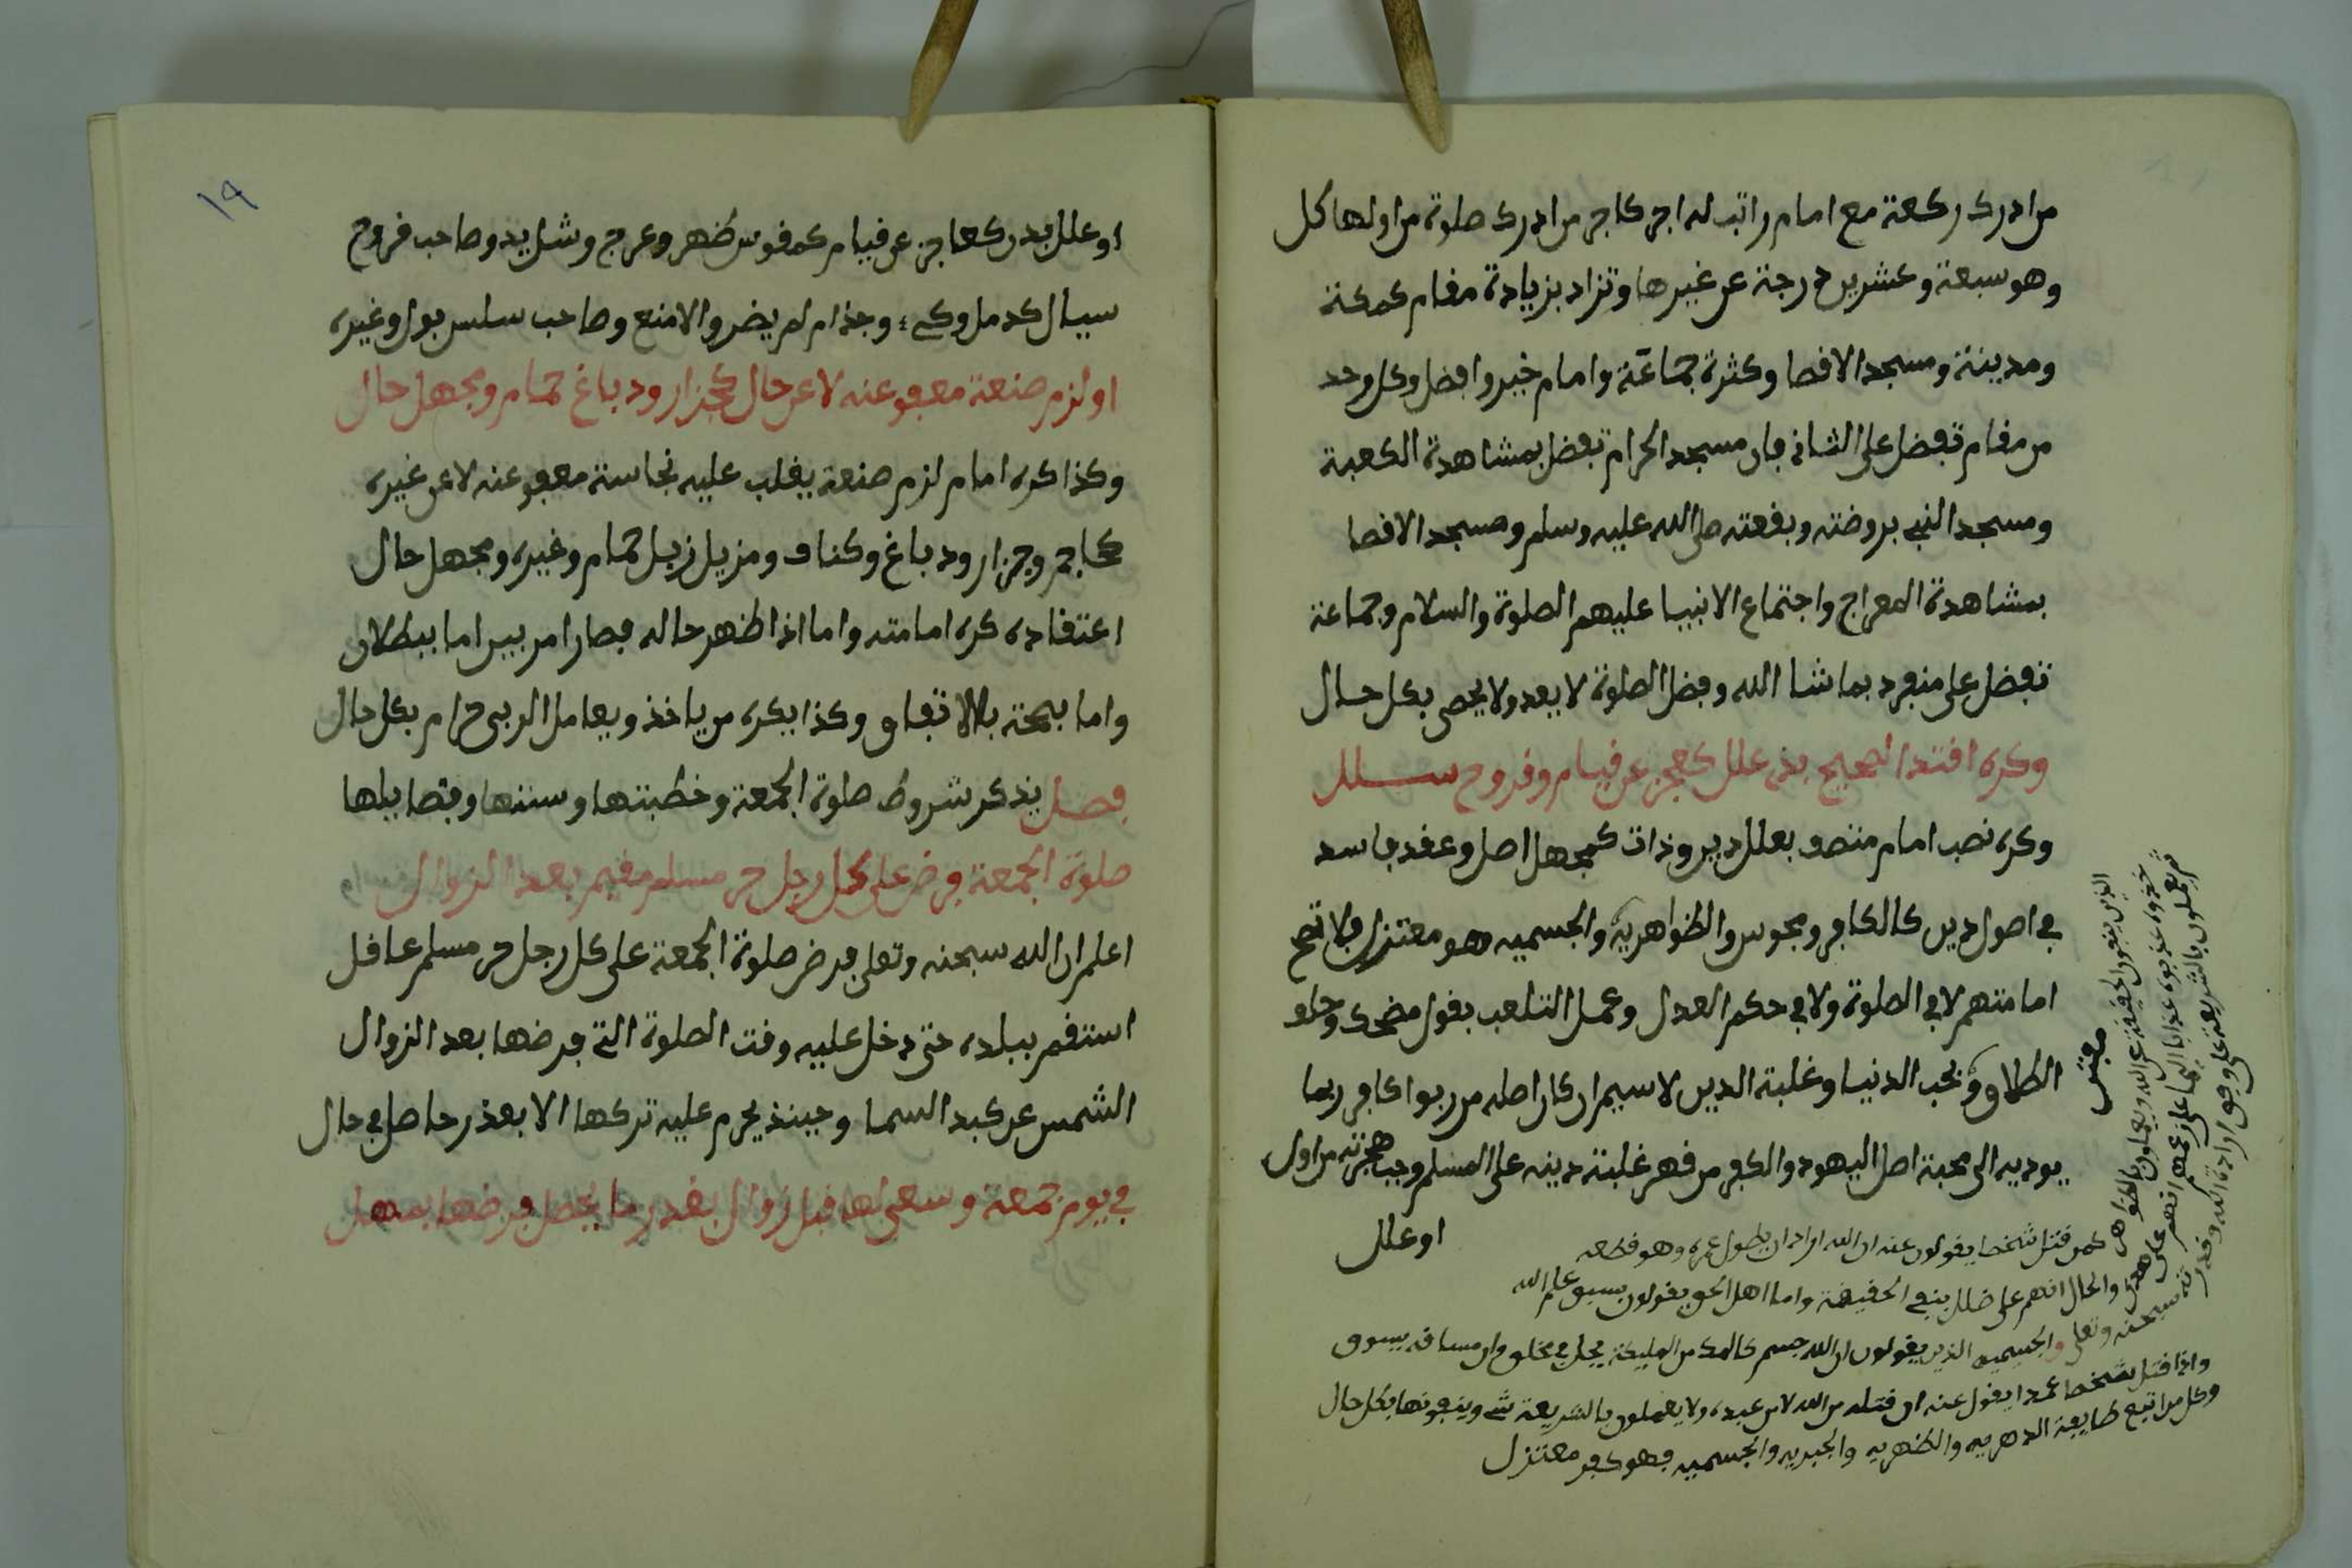 من ادرك ركعة مع امام راتب له اجر كاجر من ادرك صلوة من اولها كل
وهو سبعة وعشرين درجة عن غيرها وتزاد بزيادة مقام كمكة
ومدينة ومسجد الاقصا وكثرة جماعة وامام خير وافضل وكل وحد
من مقام تفضل على الثاني فان مسجد الحرام تفضل بمشاهدة الكعبة
ومسجد النبي بروضته وبقعته صلى الله عليه وسلم ومسجد الاقصا
بمشاهدة المعراج واجتماع الانبيا عليهم الصلوة والسلام وجماعة
تفضل على منفرد بما شا الله وفضل الصلوة لا يعد ولا يحصى بكل حال
وكره اقتدا الصحيح بذي علل كعجز عن قيام وقروح سلل
وكره نصب امام متصف بعلل دين وذات كمجهل اصل وعقد فاسد
في اصول دين كالكافر ومجوس والظواهرية والجسميه وهو معتزل فلا تصح
امامتهم لا في الصلوة ولا في حكم العدل وعمل التلعب بقول مضحك وحلف
الطلاق ويحب الدنيا وغلبة الدين لا سيم ان كان اصله من ربوا كافر ربما
يوديه الى محبة اصل اليهود والكفر من قهر غلبة دينه على المسلم وجب هجرته من اول
او علل
مقتبس
الذين ينفون الحقيقة عن الله ويعملون بالظواهر
كمن قتل شخصا يقولون عنه ان الله اراد ان يطول عمره وهو قطعه
والحال انهم على ضلل بنفي الحقيقة واما اهل الحق يقولون بسبق علم الله
سبحنه وتعلى والجسميه الذين يقولون ان الله جسم كالملك من المليكة يحل في مخلوق وان مسافه يسوق
واذا قتل شخصا عمدا يقول عنه ان قتله من الله لا من عبده ولا يعملون بالشريعة شي وينفونها بكل حال
وكل من اتبع طايفة الدهريه والظهريه والجبريه والجسميه فهو كفر معتزل
١٩
او علل بدن كعاجز عن قيام كمقوس ظهر وعرج وشل يد وصاحب قروح
سيال كدمل وكي وجذام لم يضر والا منع وصاحب سلس بول وغيره
او لزم صنعة معفو عنه لا عن حال كجزار ودباغ حمام ومجهل حال
وكذا كره امام لزم صنعة يغلب عليه نجاسة معفو عنه لا عن غيره
كحاجم وجزار ودباغ وكناف ومزيل زبل حمام وغيره ومجهل حال
اعتقاده كره امامته واما اذا ظهر حاله فصار امر بين اما ببطلان
واما بصحة بالاتفاق وكذا يكره من ياخذ ويعامل الربى حرام بكل حال
فصل يذكر شروط صلوة الجمعة وخطبتها وسننها وفضايلها
صلوة الجمعة فرض على كل رجل حر مسلم مقيم بعد الزوال
اعلم ان الله سبحنه وتعلى فرض صلوة الجمعة على كل رجل حر مسلم عاقل
استقم ببلده حتى دخل عليه وقت الصلوة التي فرضها بعد الزوال
الشمس عن كبد السما وحينذ يحرم عليه تركها الا بعذر حاصل في حال
في يوم جمعة وسعى لها قبل زوال بقدر ما يحصل فرضها بمهل